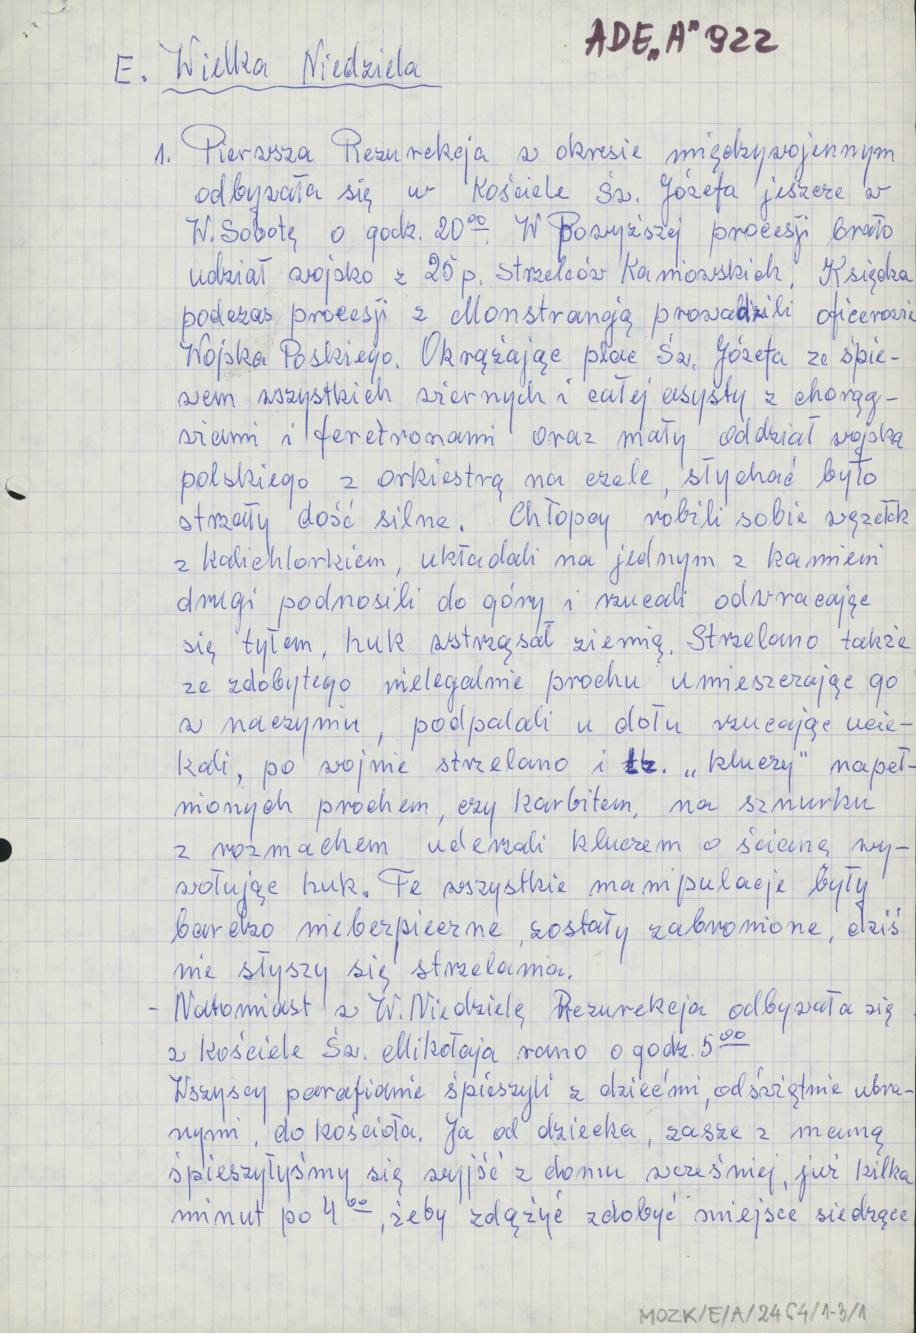 ADE„A” 922
E. Wielka Niedziela
1. Pierwsza Rezurekcja w okresie międzywojennym
odbywała się w Kościele Św. Józefa jeszcze w
W. Sobotę o godz. 20⁰⁰. W Powyższej procesji brało
udział wojsko z 25 p. Strzelców Kaniowskich. Księdza
podczas procesji z Monstrancją prowadzili oficerowie
Wojska Poskiego. Okrążając plac Św. Józefa ze śpie-
wem wszystkich wiernych i całej asysty z chorąg-
wiami i feretronami oraz mały oddział wojska
polskiego z orkiestrą na czele, słychać było
strzały dość silne. Chłopcy robili sobie węzełek
z kalichlorkiem, układali na jednym z kamieni
drugi podnosili do góry i rzucali odwracając
się tyłem, huk wstrząsał ziemią. Strzelano także
ze zdobytego nielegalnie prochu umieszczając go
w naczyniu, podpalali u dołu rzucając ucie-
kali, po wojnie strzelano i tz. „kluczy” napeł-
nionych prochem, czy karbitem, na sznurku
z rozmachem uderzali kluczem o ścianę wy-
wołując huk. Te wszystkie manipulacje były
bardzo niebezpieczne, zostały zabronione, dziś
nie słyszy się strzelania.
- Natomiast w W. Niedzielę Rezurekcja odbywała się
w kościele Św. Mikołaja rano o godz. 5⁰⁰
Wszyscy parafianie śpieszyli z dziećmi, odświętnie ubra-
nymi, do kościoła. Ja od dziecka, zasze z mamą
śpieszyłyśmy się wyjść z domu wcześniej, już kilka
minut po 4⁰⁰, żeby zdążyć zdobyć miejsce siedzące
MOZK/E/A/2464/1-3/1